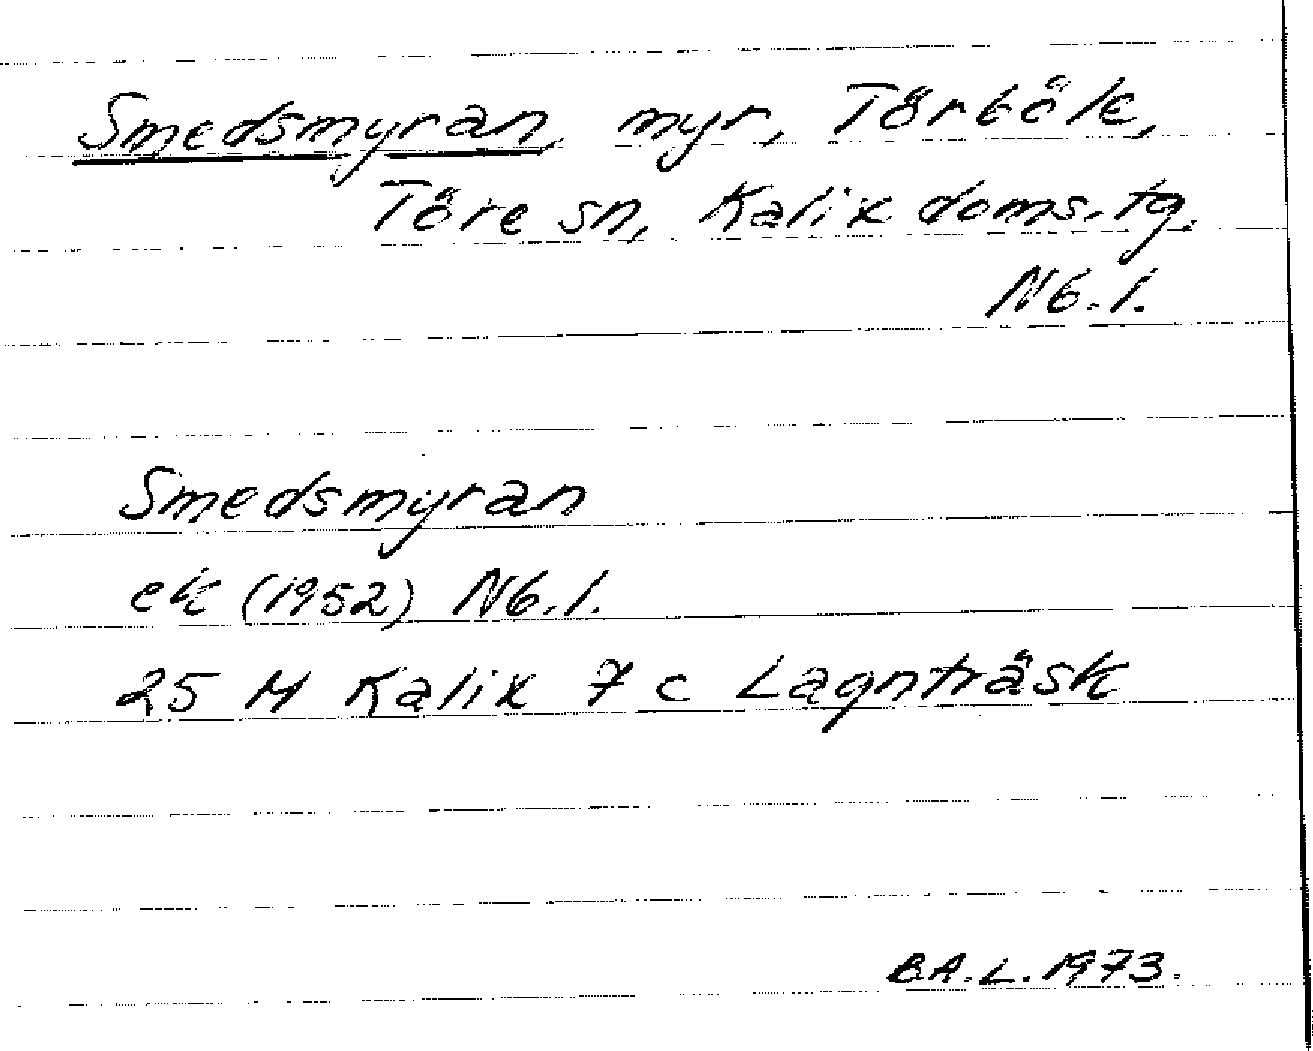 Smedsmyran, myr, Törböle,
Töre sn, Kalix doms. tg.
Nb. l.
Smedsmyran
ek (1952) Nb. l.
25 M Kalix 7 c Lagnträsk
B.A.L. 1973.